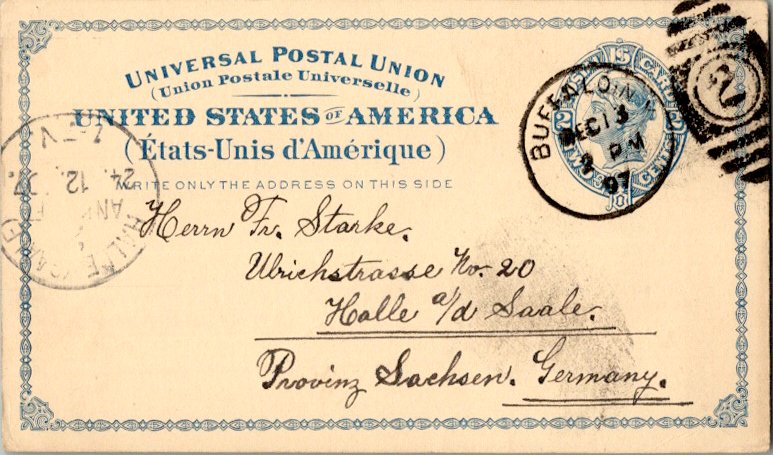 UNIVERSAL POSTAL UNION
(Union Postale Universelle)
UNITED STATES OF AMERICA
(États-Unis d'Amérique)
WRITE ONLY THE ADDRESS ON THIS SIDE
BUFFALO, N.Y.
DEC 13
PM
97
2
Herrn Fr. Starke.
Ulrichstrasse No. 20
Halle a/d Saale.
Provinz Sachsen. Germany.
HALLE
24. 12. 97.